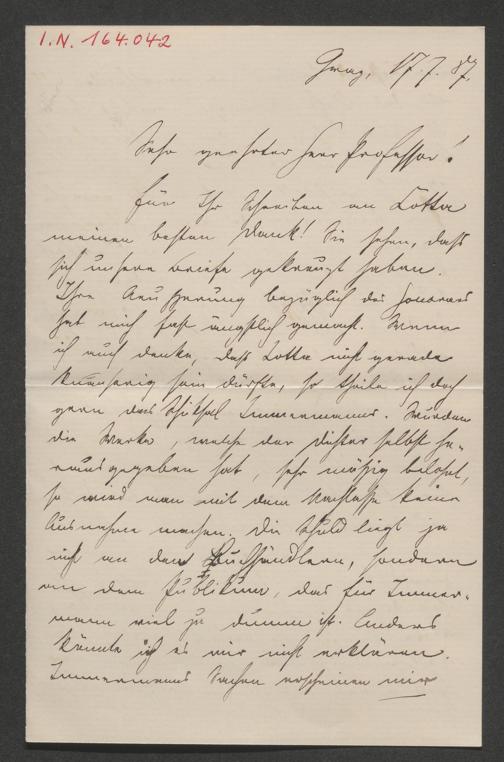 I.N. 164.042
Graz, 17.7.87.
Sehr geehrter Herr Professor!
Für Ihr Schreiben an Cotta
meinen besten Dank! Sie sehen, daß
sich unsere Briefe gekreuzt haben.
Ihre Aeußerung bezüglich des Honorars
hat mich fast ängstlich gemacht. Wenn
ich auch denke, daß Cotta nicht gerade
knauserig sein dürfte, so theile ich doch
gern das Schicksal Immermanns. Wurden
die Werke, welche der Dichter selbst he-
rausgegeben hat, sehr mäßig belohnt,
so wird man mit dem Nachlasse keine
Ausnahme machen. Die Schuld liegt ja
nicht an den Buchhändlern, sondern
an dem Publikum, das für Immer-
mann viel zu dumm ist. Anders
könnte ich es mir nicht erklären.
Immermanns Sachen erscheinen mir